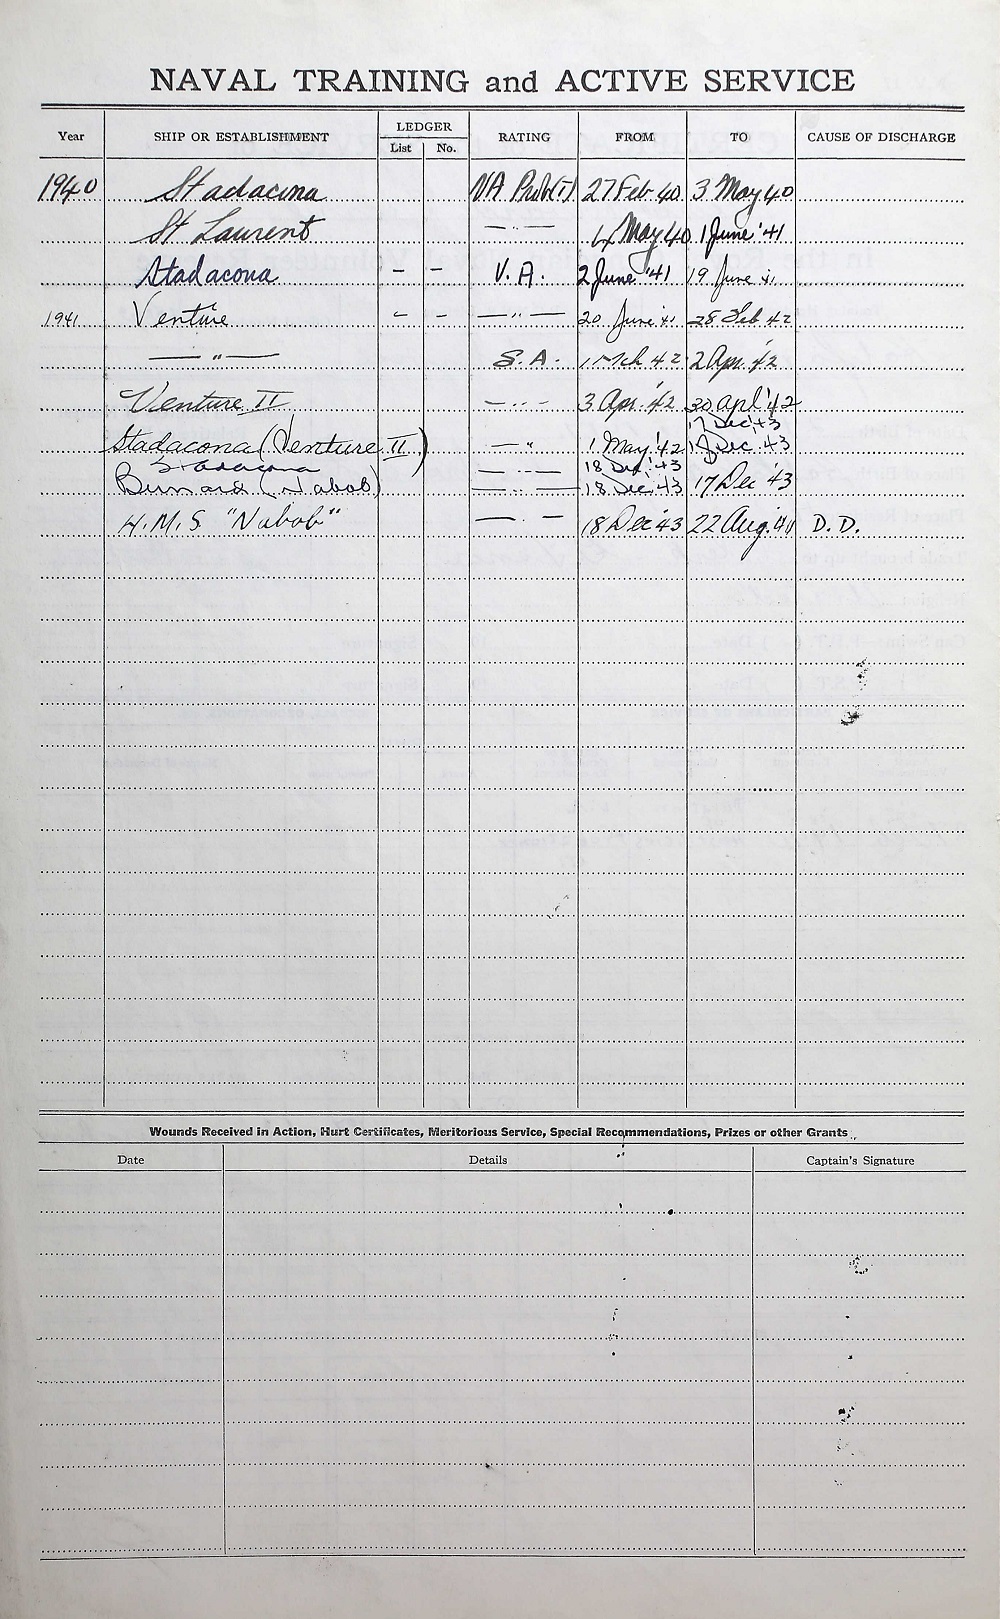 NAVAL TRAINING and ACTIVE SERVICE
Year SHIP OR ESTABLISHMENT LEDGER List No. RATING FROM TO CAUSE OF DISCHARGE
1940 Stadacona VA Prob(T) 27 Feb 40 3 May 40
St Laurent —"— 4 May 40 1 June '41
Stadacona – – V.A. 2 June '41 19 June 41
1941 Venture – – —"— 20 June 41 28 Feb 42
—"— S.A. 1 Mch 42 2 Apr. '42
Venture II —"— 3 Apr. '42 30 Apl '42
17 Dec '43
Stadacona (Venture II) —" 1 May '42 18 Dec. 43
Stadacona —"— 18 Dec. '43
(Nabob) —"— 18 Dec '43 17 Dec '43
H.M.S. "Nabob" —"— 18 Dec '43 22 Aug. '44 D.D.
Wounds Received in Action, Hurt Certificates, Meritorious Service, Special Recommendations, Prizes or other Grants
Date Details Captain's Signature